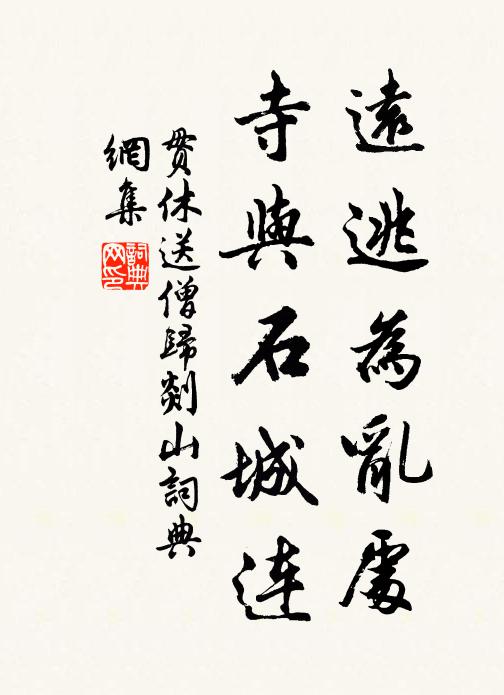 遠逃為亂處
寺與石城連
貫休送僧歸剡山詞典
網集
詞典
网印